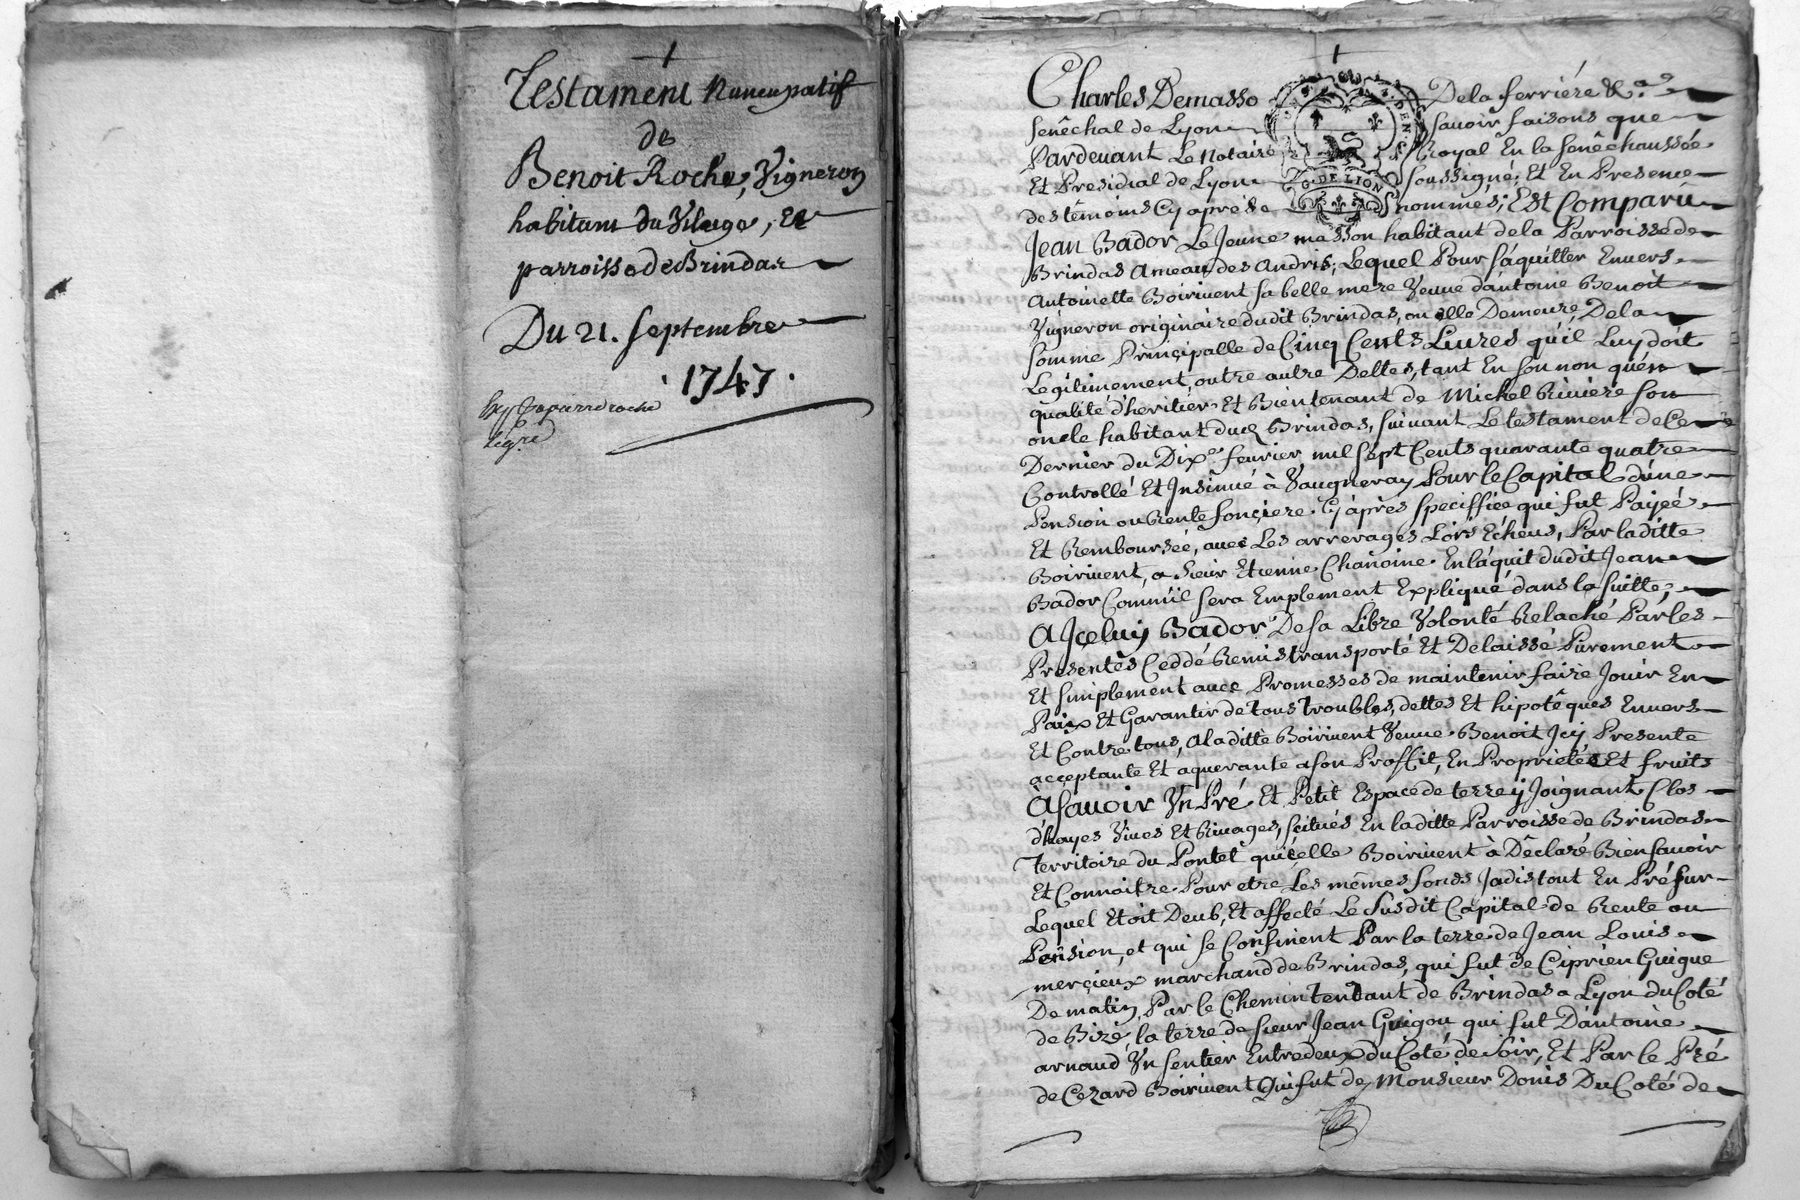 Testament Nuncupatif
de
Benoit Roche, Vigneron
habitant du Vilage, Et
parroisse de Brindas
Du 21. Septembre
. 1747 .
Charles Demasso De la ferriére &.a
Senêchal de Lyon savoir faisons que
Pardevant Le Notaire Royal En la senêchaussée
Et Presidial de Lyon soussigné; Et En Presence
des têmoins Cy aprés nommés; Est Comparû
G. DE LION
Jean Bador Le Jeune masson habitant de la Parroisse de
Brindas Ameau des Andris; Lequel Pour s'áquitter Envers
Antoinette Boirivent sa belle mere Veuve d'antoine Benoit
Vigneron originaire dudit Brindas, ou elle Demeure, De la
somme Prinçipalle de Cinq Cents Livres qu'il Luy doit
Legitimement, outre autre Dettes, tant En son non qu'én
qualité d'heritier Et Bientenant de Michel Riviere son
oncle habitant dud Brindas, suivant Le testament de Ce
Dernier du Dix.e février mil sept Cents quarante quatre
Controllé Et Insinué à Vaugneray Pour le Capital d'une
Pension ou Rente fonçiere Cy àprès speciffiée qui fut Paiyéé
Et Remboursée, avec Les arrerages Lors Echeus, Par laditte
Boirivent, a sieur Etienne Chanoine En láquit dudit Jean
Bador Comm'il sera Emplement Expliqué dans la suitte;
A Içeluy Bador De sa Libre Volonté Relaché Par les
Presentes Ceddé Remis transporté Et Delaissé Purement
Et simplement avec Promesses de maintenir faire Jouir En
Paix Et Garantir de tous troubles, dettes Et hipotêques Envers
Et Contre tous, A laditte Boirivent Veuve Benoit Icy Presente
acçeptante Et aquerante a son Proffit, En Proprietée Et fruits
àsavoir Vn Pré Et Petit Espace de terre y Joignant Clos
d'hayes Vives Et Rivages, scitués En laditte Parroisse de Brindas
Territoire du Pontet qu'icelle Boirivent a Déclaré Bien savoir
Et Connoitre Pour etre Les mêmes fonds Jadis tout En Pré sur
Lequel Etoit Deub, Et affecté Le Susdit Capital de Rente ou
Pension, et qui se Confinent Par la terre de Jean Louis
merçieux marchand de Brindas, qui fut de Ciprien Guigue
De matin, Par le Chemin tendant de Brindas a Lyon du Coté
de Bize, la terre de sieur Jean Guigou qui fut D'antoine
arnaud Vn sentier Entredeux du Coté de soir, Et Par le Pré
de Cezard Boirivent Qui fut de Monsieur Donis Du Coté de